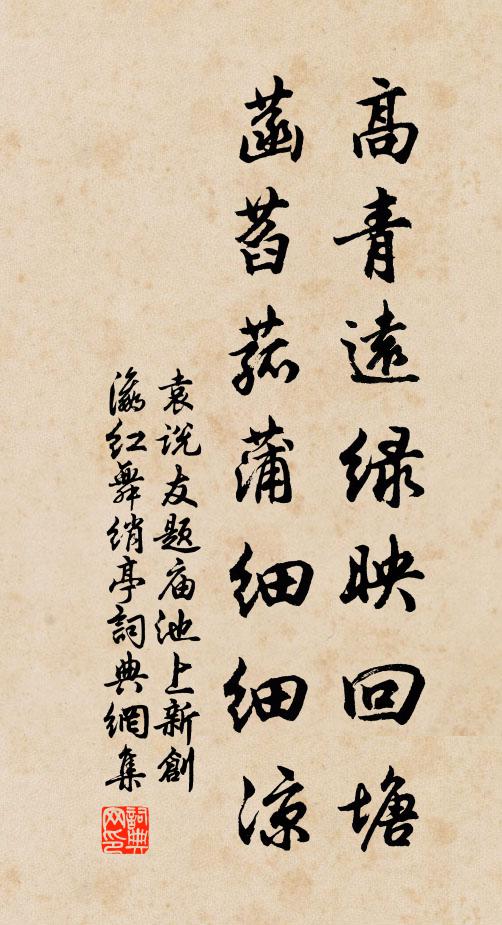 高青遠绿映回塘
菡萏菰蒲细细凉
袁说友题庙池上新創
瀛红舞绡亭詞典網集
詞典网印